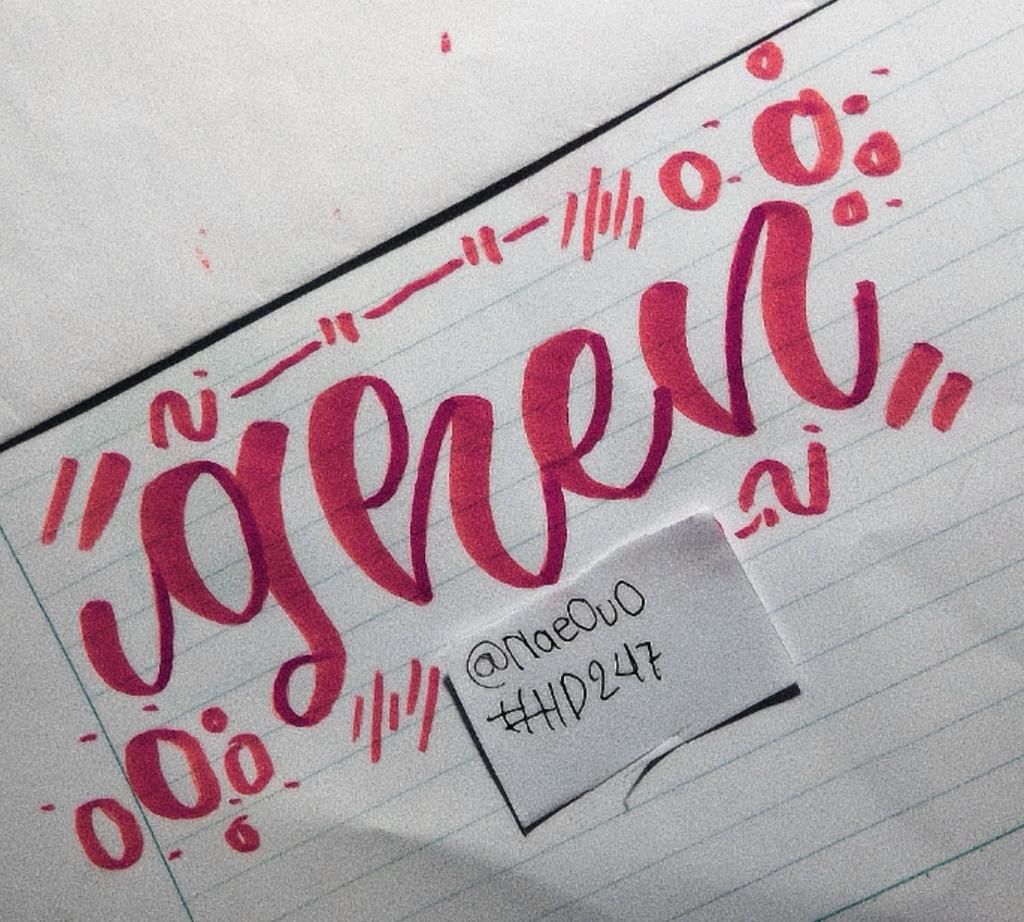 "ghen"
@NaeOuO
#HD247